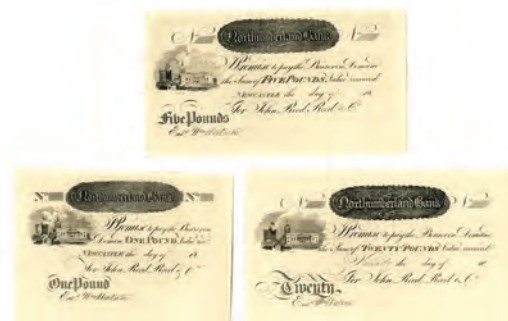 Northumberland Bank
I Promise to pay the Bearer on Demand
the Sum of FIVE POUNDS Value received
NEWCASTLE the day of 18
For John Reed, Reed & Co
Five Pounds
Entd
Northumberland Bank
No No
I Promise to pay the Bearer on
Demand ONE POUND Value
NEWCASTLE the day of 18
For John Reed, Reed & Co
One Pound
Entd
Northumberland Bank
I Promise to pay the Bearer on Demand
the Sum of TWENTY POUNDS Value received
the day of 18
For John Reed, Reed & Co
Twenty
Entd